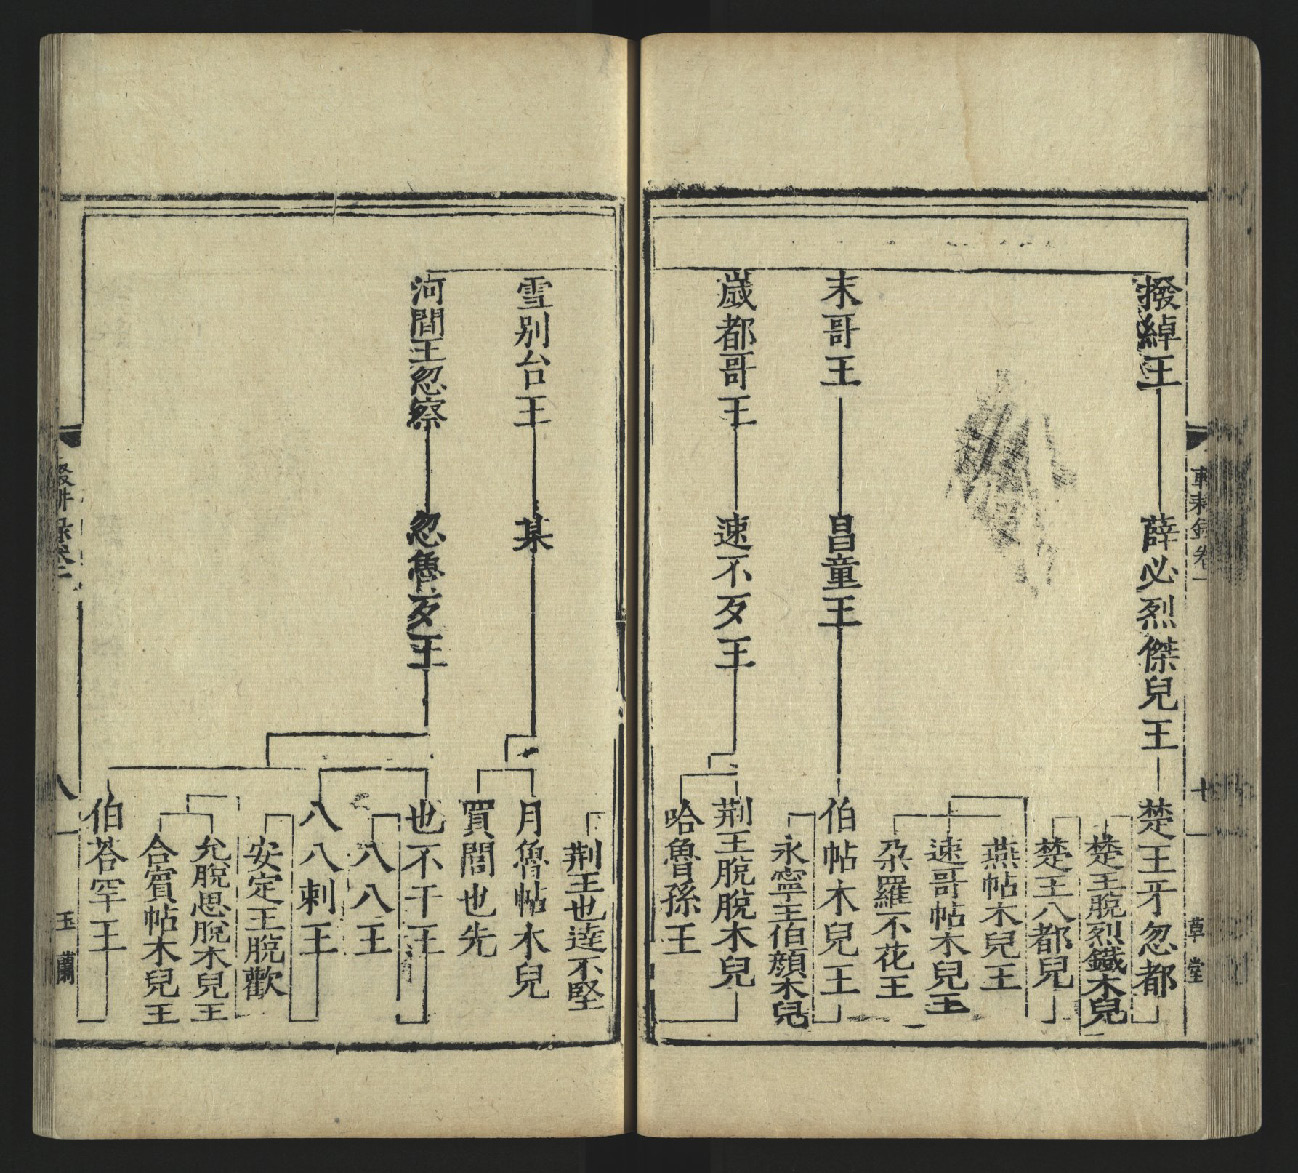 撥綽王
薛必烈傑兒王
楚王牙忽都
楚王脫烈鐵木兒
楚王八都兒
燕帖木兒王
速哥帖木兒王
朶羅不花王
末哥王
昌童王
伯帖木兒王
永寧王伯顏木兒
歲都哥王
速不歹王
荆王脫脫木兒
哈魯孫王
荆王也逹不堅
雪别台王
某
月魯帖木兒
買閭也先
河間王忽察
忽魯歹王
也不干王
八八王
八八剌王
安定王脫歡
允脫思脫木兒王
合賓帖木兒王
伯荅罕王
耕錄卷一
七
草堂
八
玉蘭